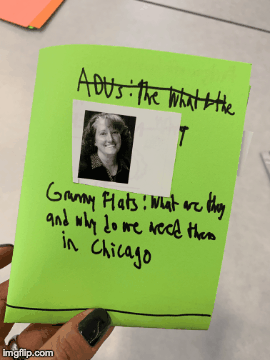 ADUs: The What & the
T
Granny Flats: What are they
and why do we need them
in Chicago
imgflip.com